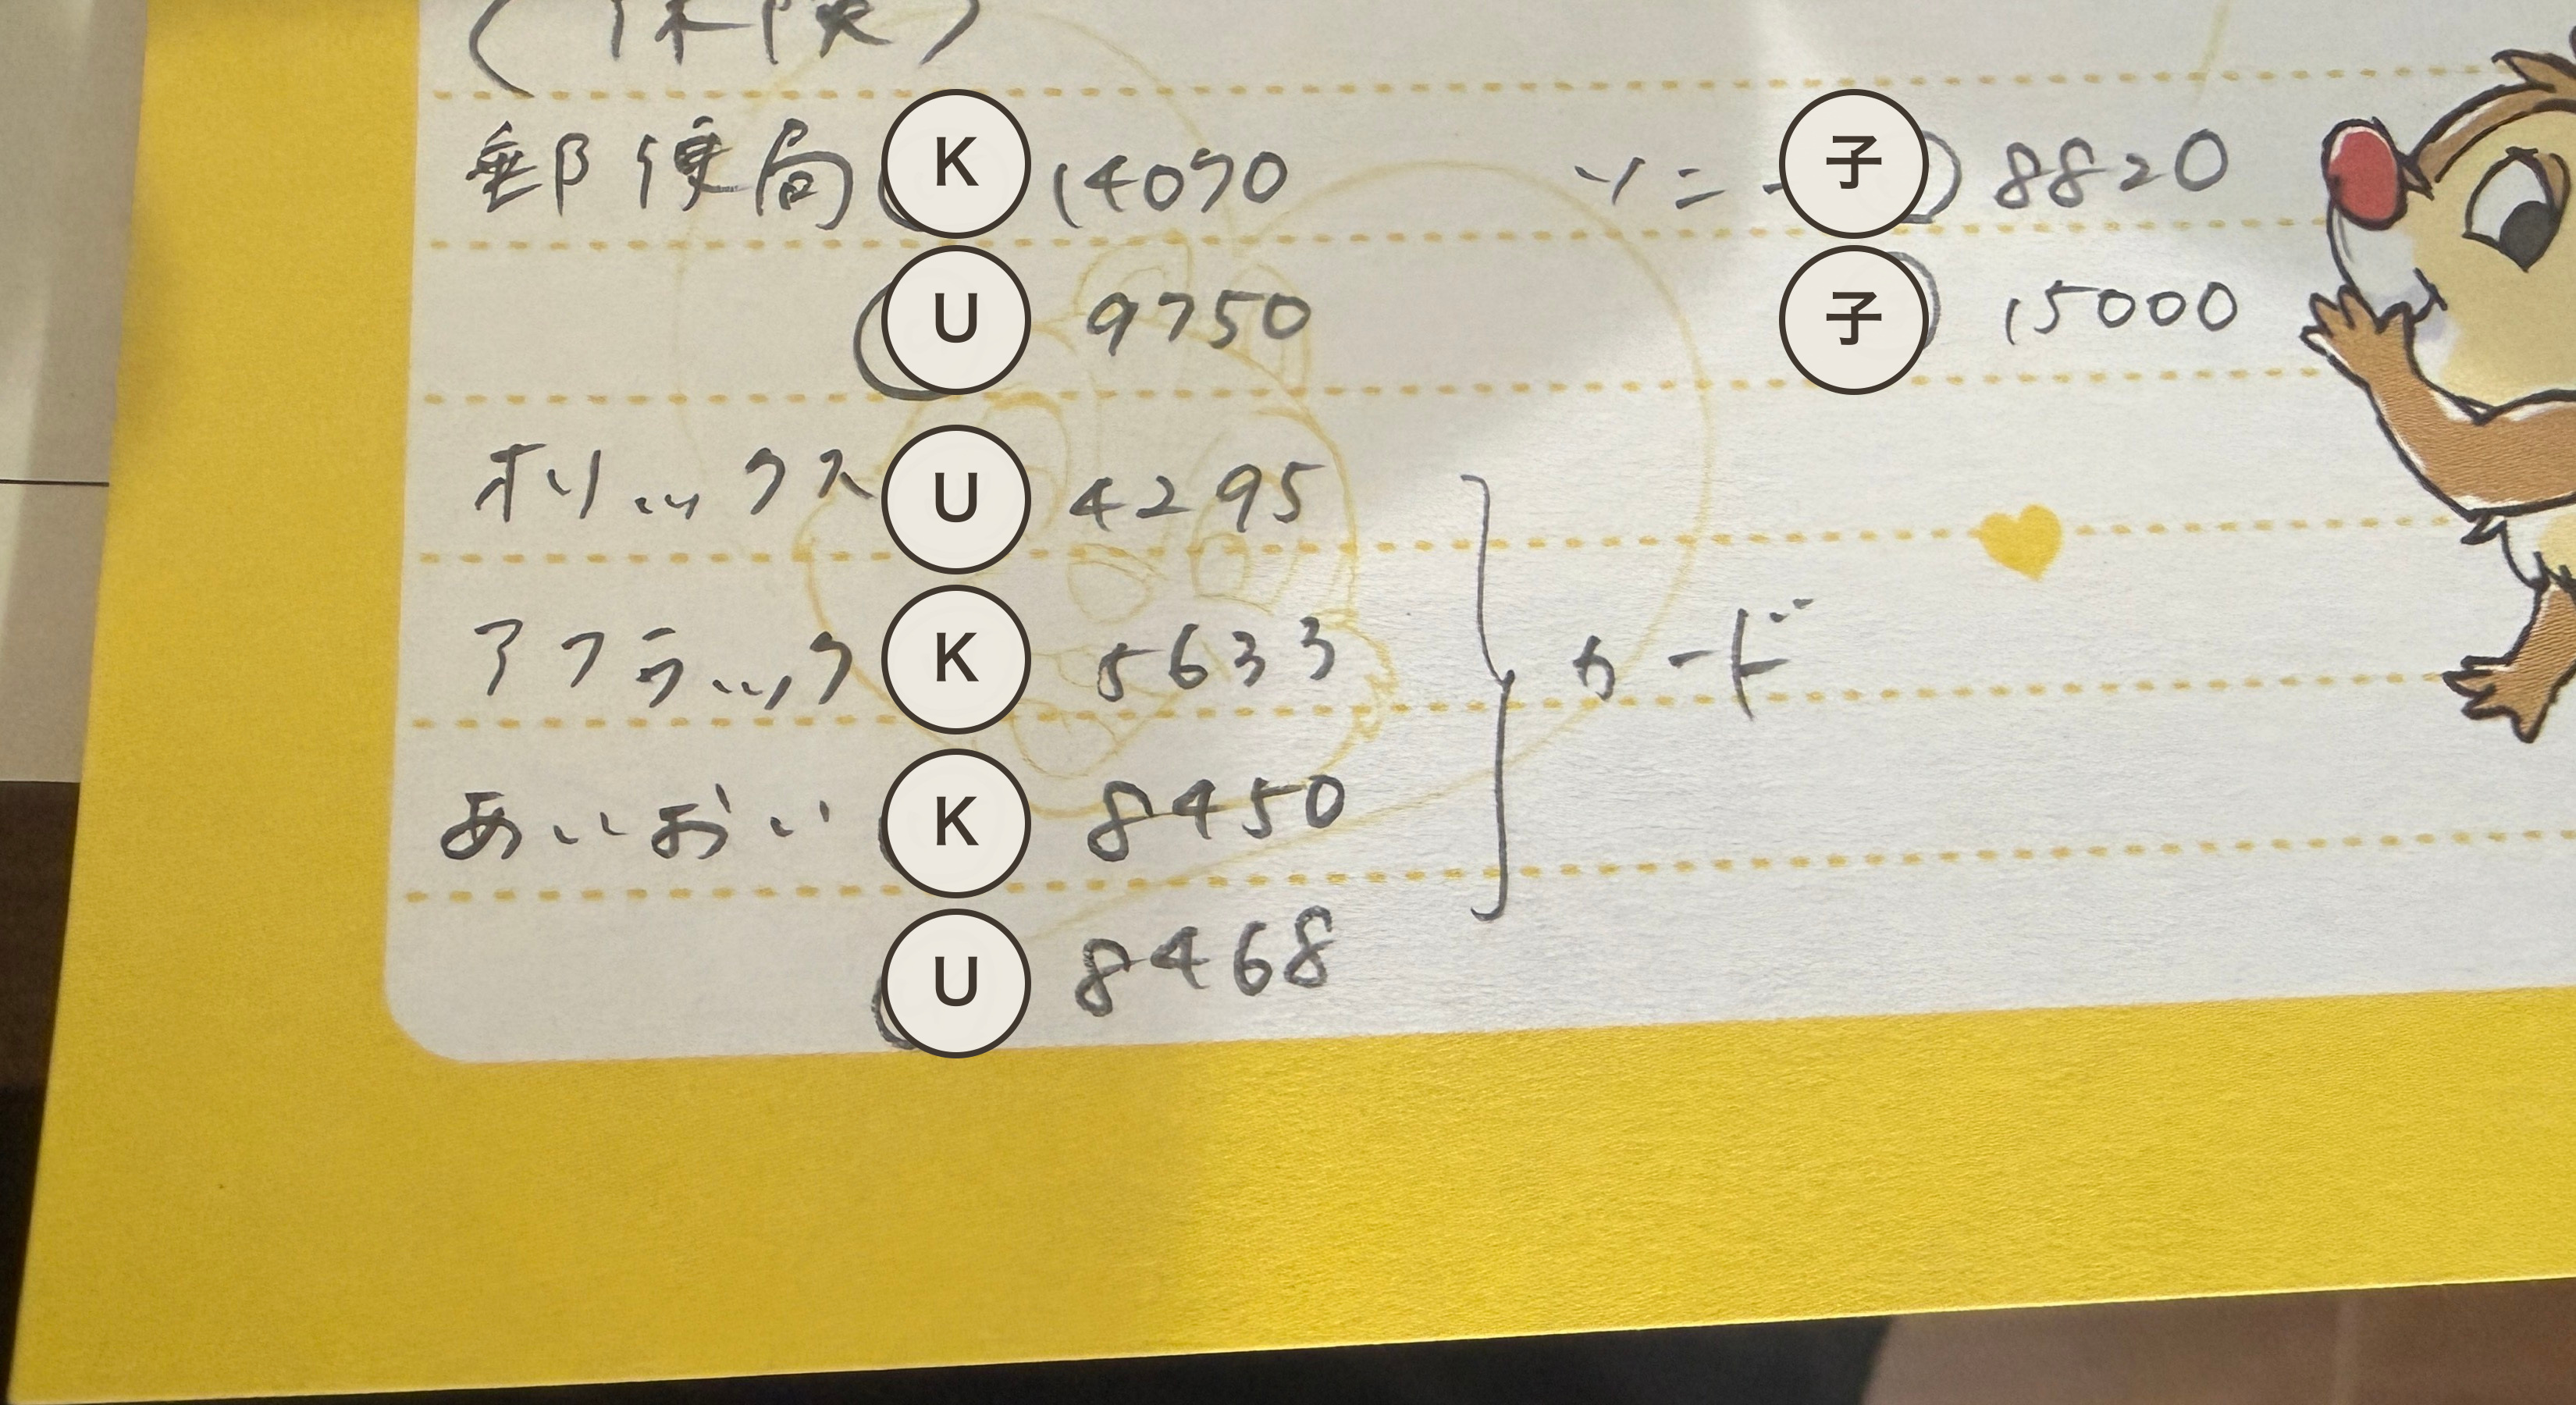 (保険)
郵便局(K 14070
(U 9750
オリックス U 4295
アフラック K 5633
あいおい(K 8450
(U 8468
カード
ソニー 子) 8820
子) 15000